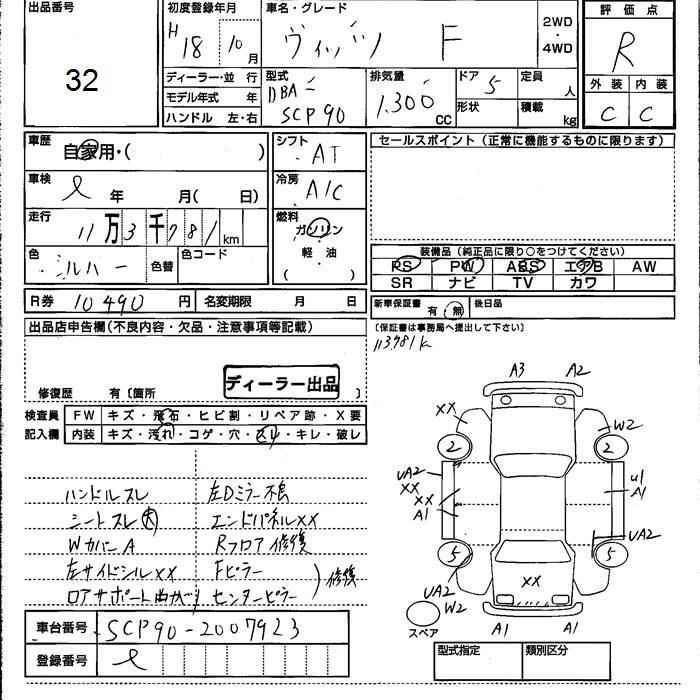 出品番号
32
初度登録年月
H 18 10 月
車名・グレード
ヴィッツ F
2WD
・
4WD
評価点
R
外装 内装
C C
ディーラー・並 行
モデル年式 年
ハンドル 左・右
型式
DBA-
SCP90
排気量
1.300 CC
ドア 5
形状
定員 人
積載 kg
車歴
自家用・( )
車検
年 月( 日)
走行
11万3千781 km
色
シルバー
色替
色コード
シフト
AT
冷房
A/C
燃料
ガソリン
・
軽・油
( )
R券 10490 円
名変期限 月 日
セールスポイント(正常に機能するものに限ります)
装備品(純正品に限り○をつけてください)
PS PW ABS エアB AW
SR ナビ TV カワ
新車保証書 有・無
後日品
(保証書は事務局へ提出して下さい)
113781k
出品店申告欄(不良内容・欠品・注意事項等記載)
ディーラー出品
修復歴 有〔箇所 〕
検査員
記入欄
FW キズ・飛石・ヒビ割・リペア跡・X要
内装 キズ・汚れ・コゲ・穴・スレ・キレ・破レ
ハンドルスレ
シートスレ大
WカバーA
左サイドシルXX
ロアサポート曲がり
左Dミラー不良
エンドパネルXX
Rフロア修復
Fピラー
センターピラー
修復
車台番号 SCP90-2007923
登録番号
A3 A2
XX
W2
2
2
UA2
XX
XX
A1
U1
A1
UA2
5
5
UA2
W2
XX
A1 A1
スペア
型式指定
類別区分